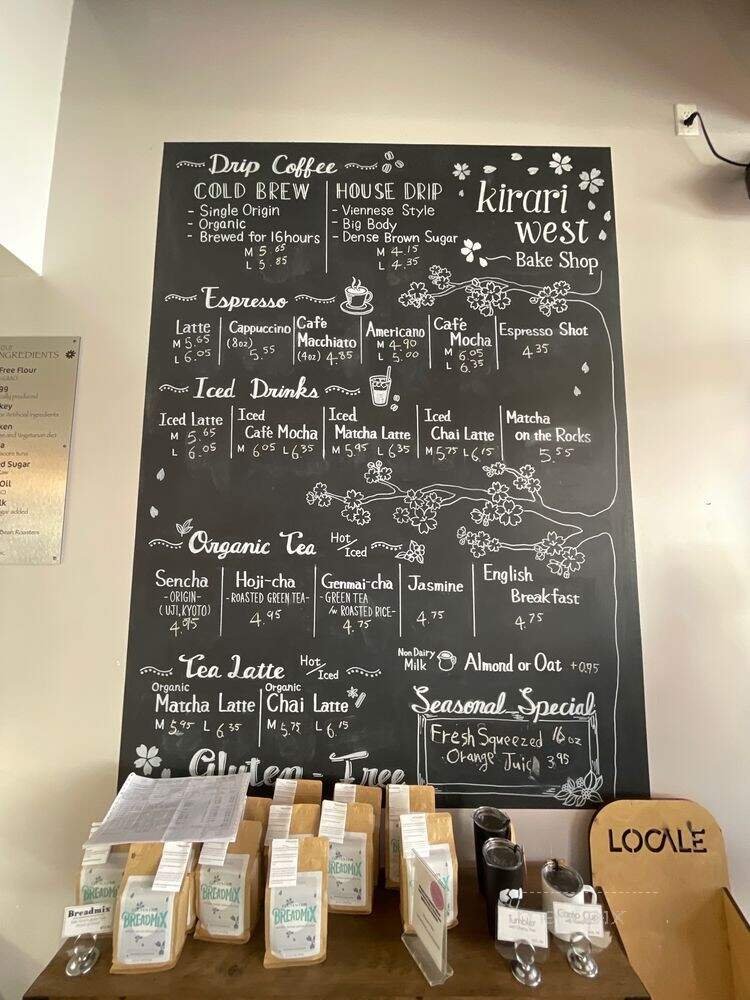 Drip Coffee
COLD BREW
- Single Origin
- Organic
- Brewed for 16hours
M 5.65
L 5.85
HOUSE DRIP
- Viennese Style
- Big Body
- Dense Brown Sugar
M 4.15
L 4.35
kirari
west
Bake Shop
Espresso
Latte
M 5.65
L 6.05
Cappuccino
(8oz)
5.55
Café
Macchiato
(4oz) 4.85
Americano
M 4.90
L 5.00
Café
Mocha
M 6.05
L 6.35
Espresso Shot
4.35
Iced Drinks
Iced Latte
M 5.65
L 6.05
Iced
Café Mocha
M 6.05 L 6.35
Iced
Matcha Latte
M 5.95 L 6.35
Iced
Chai Latte
M 5.75 L 6.15
Matcha
on the Rocks
5.55
Organic Tea Hot/Iced
Sencha
-ORIGIN-
(UJI, KYOTO)
4.95
Hoji-cha
-ROASTED GREEN TEA-
4.95
Genmai-cha
-GREEN TEA
/w ROASTED RICE-
4.75
Jasmine
4.75
English
Breakfast
4.75
Tea Latte Hot/Iced
Organic
Matcha Latte
M 5.95 L 6.35
Organic
Chai Latte
M 5.75 L 6.15
Non Dairy
Milk
Almond or Oat +0.95
Seasonal Special
Fresh Squeezed 16 oz
Orange Juice 3.95
Gluten-Free
INGREDIENTS
Free Flour
Bean Roasters
Breadmix
BREADMIX
BREADMIX
BREADMIX
BREADMIX
BREADMIX
LOCALE
Tumbler
Camp Cup